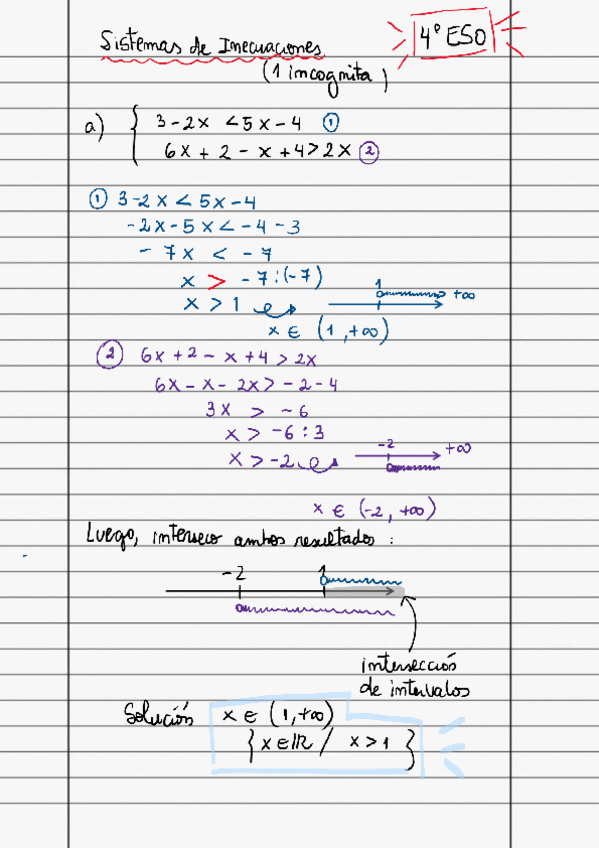 Sistemas de Inecuaciones
4º ESO
(1 incognita)
a) { 3-2x < 5x-4 ①
6x+2-x+4>2x ②
① 3-2x < 5x-4
-2x-5x < -4-3
-7x < -7
x > -7:(-7)
1
+∞
x > 1
x ∈ (1,+∞)
② 6x+2-x+4>2x
6x-x-2x>-2-4
3x > -6
x > -6:3
-2
+∞
x > -2
x ∈ (-2,+∞)
Luego, interseco ambos resultados:
-2 1
intersección
de intervalos
Solución x ∈ (1,+∞)
{x∈ℝ / x>1}